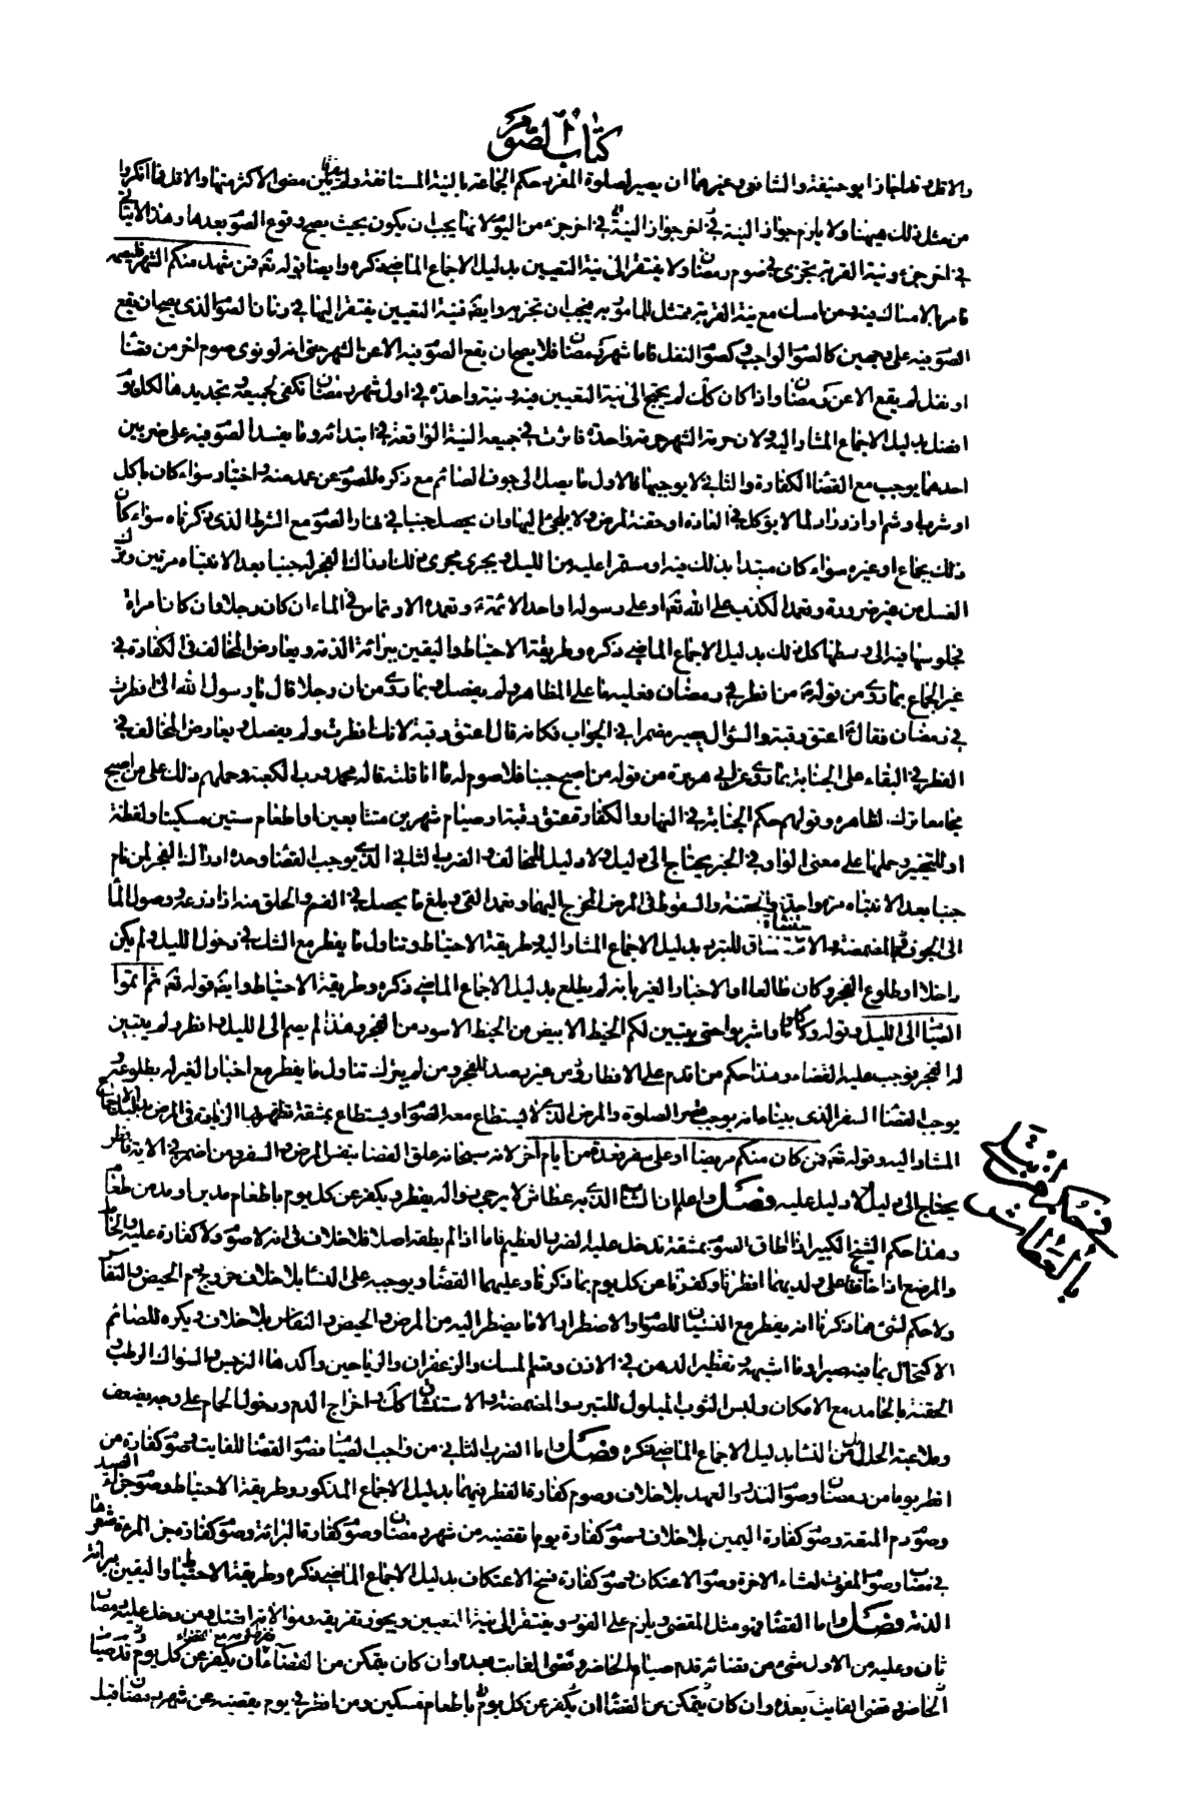 كتاب الصوم
والاقل وقد اجازا بو حنيفة والشافعي وغيرهما ان يصير لصلوة المغرب حكم الجماعة بالنية المستانفة وان مضى الاكثر منها والاقل فما انكروا
من مثل ذلك هيهنا ولا يلزم جواز النية في اخر جزء من اليوم لانها يجب ان يكون بحيث يصح وقوع الصوم بعدها وهذا لا يتاتى
في اخر جزء ونية القربة تجزى في صوم رمضان ولا يفتقر الى نية التعيين بدليل الاجماع الماضي ذكره وايضا قوله تع فمن شهد منكم الشهر فليصمه
فامر بالامساك فيه ومن امسك مع نية القربة ممتثل للمامور به فيجب ان تجزيه وايضا فنية التعيين يفتقر اليها في زمان الصوم الذي يصح ان يقع
الصوم فيه على وجهين كالصوم الواجب وكصوم النفل فاما شهر رمضان فلا يصح ان يقع الصوم فيه الا عن الشهر حتى انه لو نوى صوم اخر من قضاء
او نفل لم يقع الا عن رمضان واذا كان كك لم يحتج الى نية التعيين فيه ونية واحدة في اول شهر رمضان تكفى لجميعه وتجديدها لكل يوم
افضل بدليل الاجماع المشار اليه ولان حرمة الشهر حرمة واحدة فاثرت في جميعه النية الواقعة في ابتدائه وما يفسد الصوم فيه على ضربين
احدهما يوجب مع القضاء الكفارة والثاني لا يوجبها فالاول ما يصل الى جوف الصائم مع ذكره للصوم عن عمد منه واختيار سواء كان باكل
او شرب او شم او ازدراد لما لا يؤكل في العادة او حقنة لمرض ولا يلجئ اليها وان يحصل جنبا في نهار الصوم مع الشرط الذي ذكرناه سواء كان
ذلك بجماع او غيره سواء كان مبتدأ بذلك فيه او مستمرا عليه من الليل ويجرى مجرى ذلك ادراك الفجر له جنبا بعد الانتباه مرتين وترك
الغسل من غير ضرورة وتعمد الكذب على الله تع او على رسوله او احد الائمة ع وتعمد الارتماس في الماء ان كان رجلا وان كان امراة
فجلوسها فيه الى وسطها كل ذلك بدليل الاجماع الماضي ذكره وطريقة الاحتياط واليقين ببرائة الذمة ويعارض المخالف في الكفارة في
غير الجماع بما روى من قوله ع من افطر في رمضان فعليه ما على المظاهر ولم يفصل وبما روى من ان رجلا قال يا رسول الله انى افطرت
في رمضان فقال ع اعتق رقبة والسؤال يصير مضمرا في الجواب فكانه قال اعتق رقبة لانك افطرت ولم يفصل ويعارض المخالف في
الفطر في البقاء على الجنابة بما روى عن ابي هريرة من قوله من اصبح جنبا فلا صوم له ما انا قلته قاله محمد ورب الكعبة وحملهم ذلك على من اصبح
مجامعا ترك للظاهر وقولهم حكم الجنابة في النهار والكفارة عتق رقبة او صيام شهرين متتابعين او اطعام ستين مسكينا ولفظة
او للتخيير وحملها على معنى الواو في الخبر يحتاج الى دليل ولا دليل للمخالف والضرب الثاني الذي يوجب القضاء وحده ادراك الفجر لمن نام
جنبا بعد الانتباه مرة واحدة والحقنة والسعوط في المرض المحوج اليهما وتعمد القئ وبلع ما يحصل في الفم والحلق منه اذا ذرعه ووصول الماء
الى الجوف في المضمضة والاستنشاق للتبرد بدليل الاجماع المشار اليه وطريقة الاحتياط وتناول ما يفطر مع الشك في دخول الليل ولم يكن
داخلا او طلوع الفجر وكان طالعا او الاخبار الغير بانه لم يطلع بدليل الاجماع الماضي ذكره وطريقة الاحتياط وايضا قوله تع ثم اتموا
الصيام الى الليل وقوله وكلوا واشربوا حتى يتبين لكم الخيط الابيض من الخيط الاسود من الفجر وهذا لم يصم الى الليل وافطر ولم يتبين
له الفجر فوجب عليه القضاء وهذا حكم من اقدم على الافطار من غير رصد للفجر ومن لم يترك تناول ما يفطر مع اخبار الغير له بطلوعه و
يوجب القضاء السفر الذى بينا ما انه يوجب قصر الصلوة والمرض الذي لا يستطاع معه الصوم او يستطاع بمشقة تظهر بها الزيادة في المرض بدليل الاجماع
المشار اليه وقوله تع فمن كان منكم مريضا او على سفر فعدة من ايام اخر لانه سبحانه علق القضاء بنفس المرض والسفر ومن اضمر في الاية فافطر
يحتاج الى دليل ولا دليل عليه فصل واعلم ان الشاب الذي به عطاش لا يرجى زواله يفطر ويكفر عن كل يوم باطعام مدين او مد من طعام
وهذا حكم الشيخ الكبير اذا اطاق الصوم بمشقة تدخل عليه الضرر العظيم فاما اذا لم يطقه اصلا فلا خلاف في انه لا صوم ولا كفارة عليه والحامل
والمرضع اذا خافتا على ولديهما افطرتا وكفرتا عن كل يوم بما ذكرناه وعليهما القضاء ويوجبه على النساء بلا خلاف خروج دم الحيض والنفاس
ولا حكم لشئ مما ذكرنا انه يفطر مع النسيان للصوم او الاضطرار الا ما يضطر اليه من المرض والحيض والنفاس بلا خلاف ويكره للصائم
الاكتحال بما فيه صبر او ما اشبهه وتقطير الدهن في الاذن وشم المسك والزعفران والرياحين واكدها النرجس والسواك الرطب و
الحقنة بالجامد مع الامكان ولبس الثوب المبلول للتبرد والمضمضة والاستنشاق كك واخراج الدم ودخول الحمام على وجه يضعف
وملاعبة الحلال من النساء بدليل الاجماع الماضي ذكره فصل واما الضرب الثاني من واجب الصيام فصوم القضاء للفايت وصوم كفارة من
افطر يوما من رمضان وصوم النذر والعهد بلا خلاف وصوم كفارة الفطر فيهما بدليل الاجماع المذكور وطريقة الاحتياط وصوم جزاء الصيد
وصوم دم المتعة وصوم كفارة اليمين بلا خلاف وصوم كفارة يوم تقضيه من شهر رمضان وصوم كفارة البرائة وصوم كفارة جز المرءة شعرها
في مصاب وصوم المفوت لعشاء الاخرة وصوم الاعتكاف وصوم كفارة فسخ الاعتكاف بدليل الاجماع الماضي ذكره وطريقة الاحتياط واليقين ببرائة
الذمة فصل واما القضاء فهو مثل المقضى يلزم على الفور ويفتقر الى نية التعيين ويجوز تفريقه وموالاته افضل ومن دخل عليه رمضان
ثان وعليه من الاول شئ من قضائه قدم صيام الحاضر وقضى الفايت بعده وان كان يتمكن من القضاء كان يكفر عن كل يوم
الحاضر وقضى الفايت بعده وان كان يتمكن من القضاء ان يكفر عن كل يوم باطعام مسكين ومن افطر في يوم يقضيه عن شهر رمضان قبل